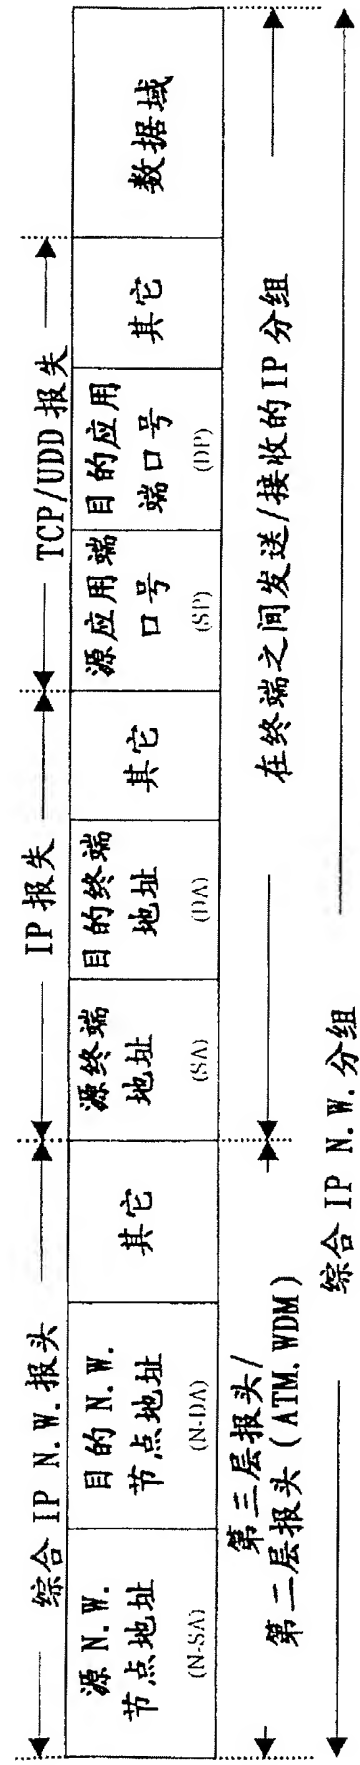 综合 IP N.W. 报头
IP 报失
TCP/UDD 报失
源 N.W.
节点地址
(N-SA)
目的 N.W.
节点地址
(N-DA)
其它
源终端
地址
(SA)
目的终端
地址
(DA)
其它
源应用端
口号
(SP)
目的应用
端口号
(DP)
其它
数据域
第三层报头/
第二层报头 (ATM. WDM)
在终端之间发送/接收的IP 分组
综合 IP N.W. 分组